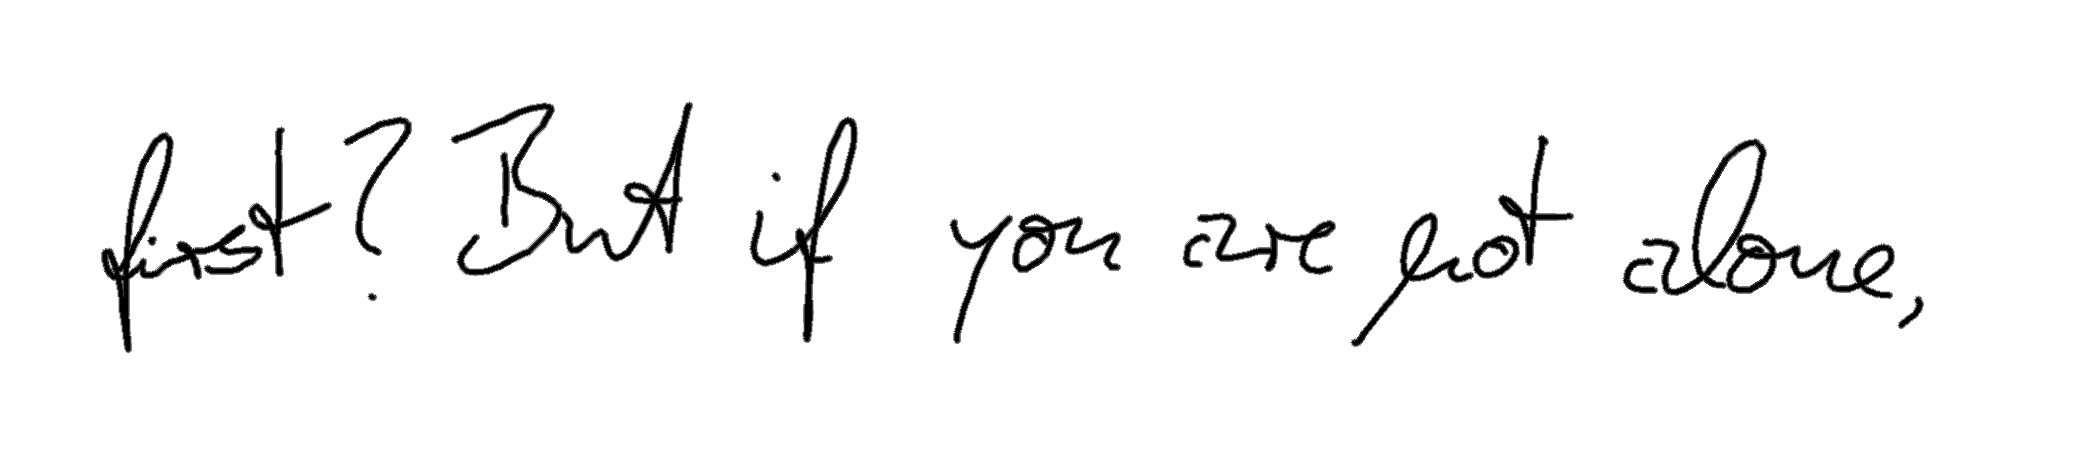 first? But if you are not alone,